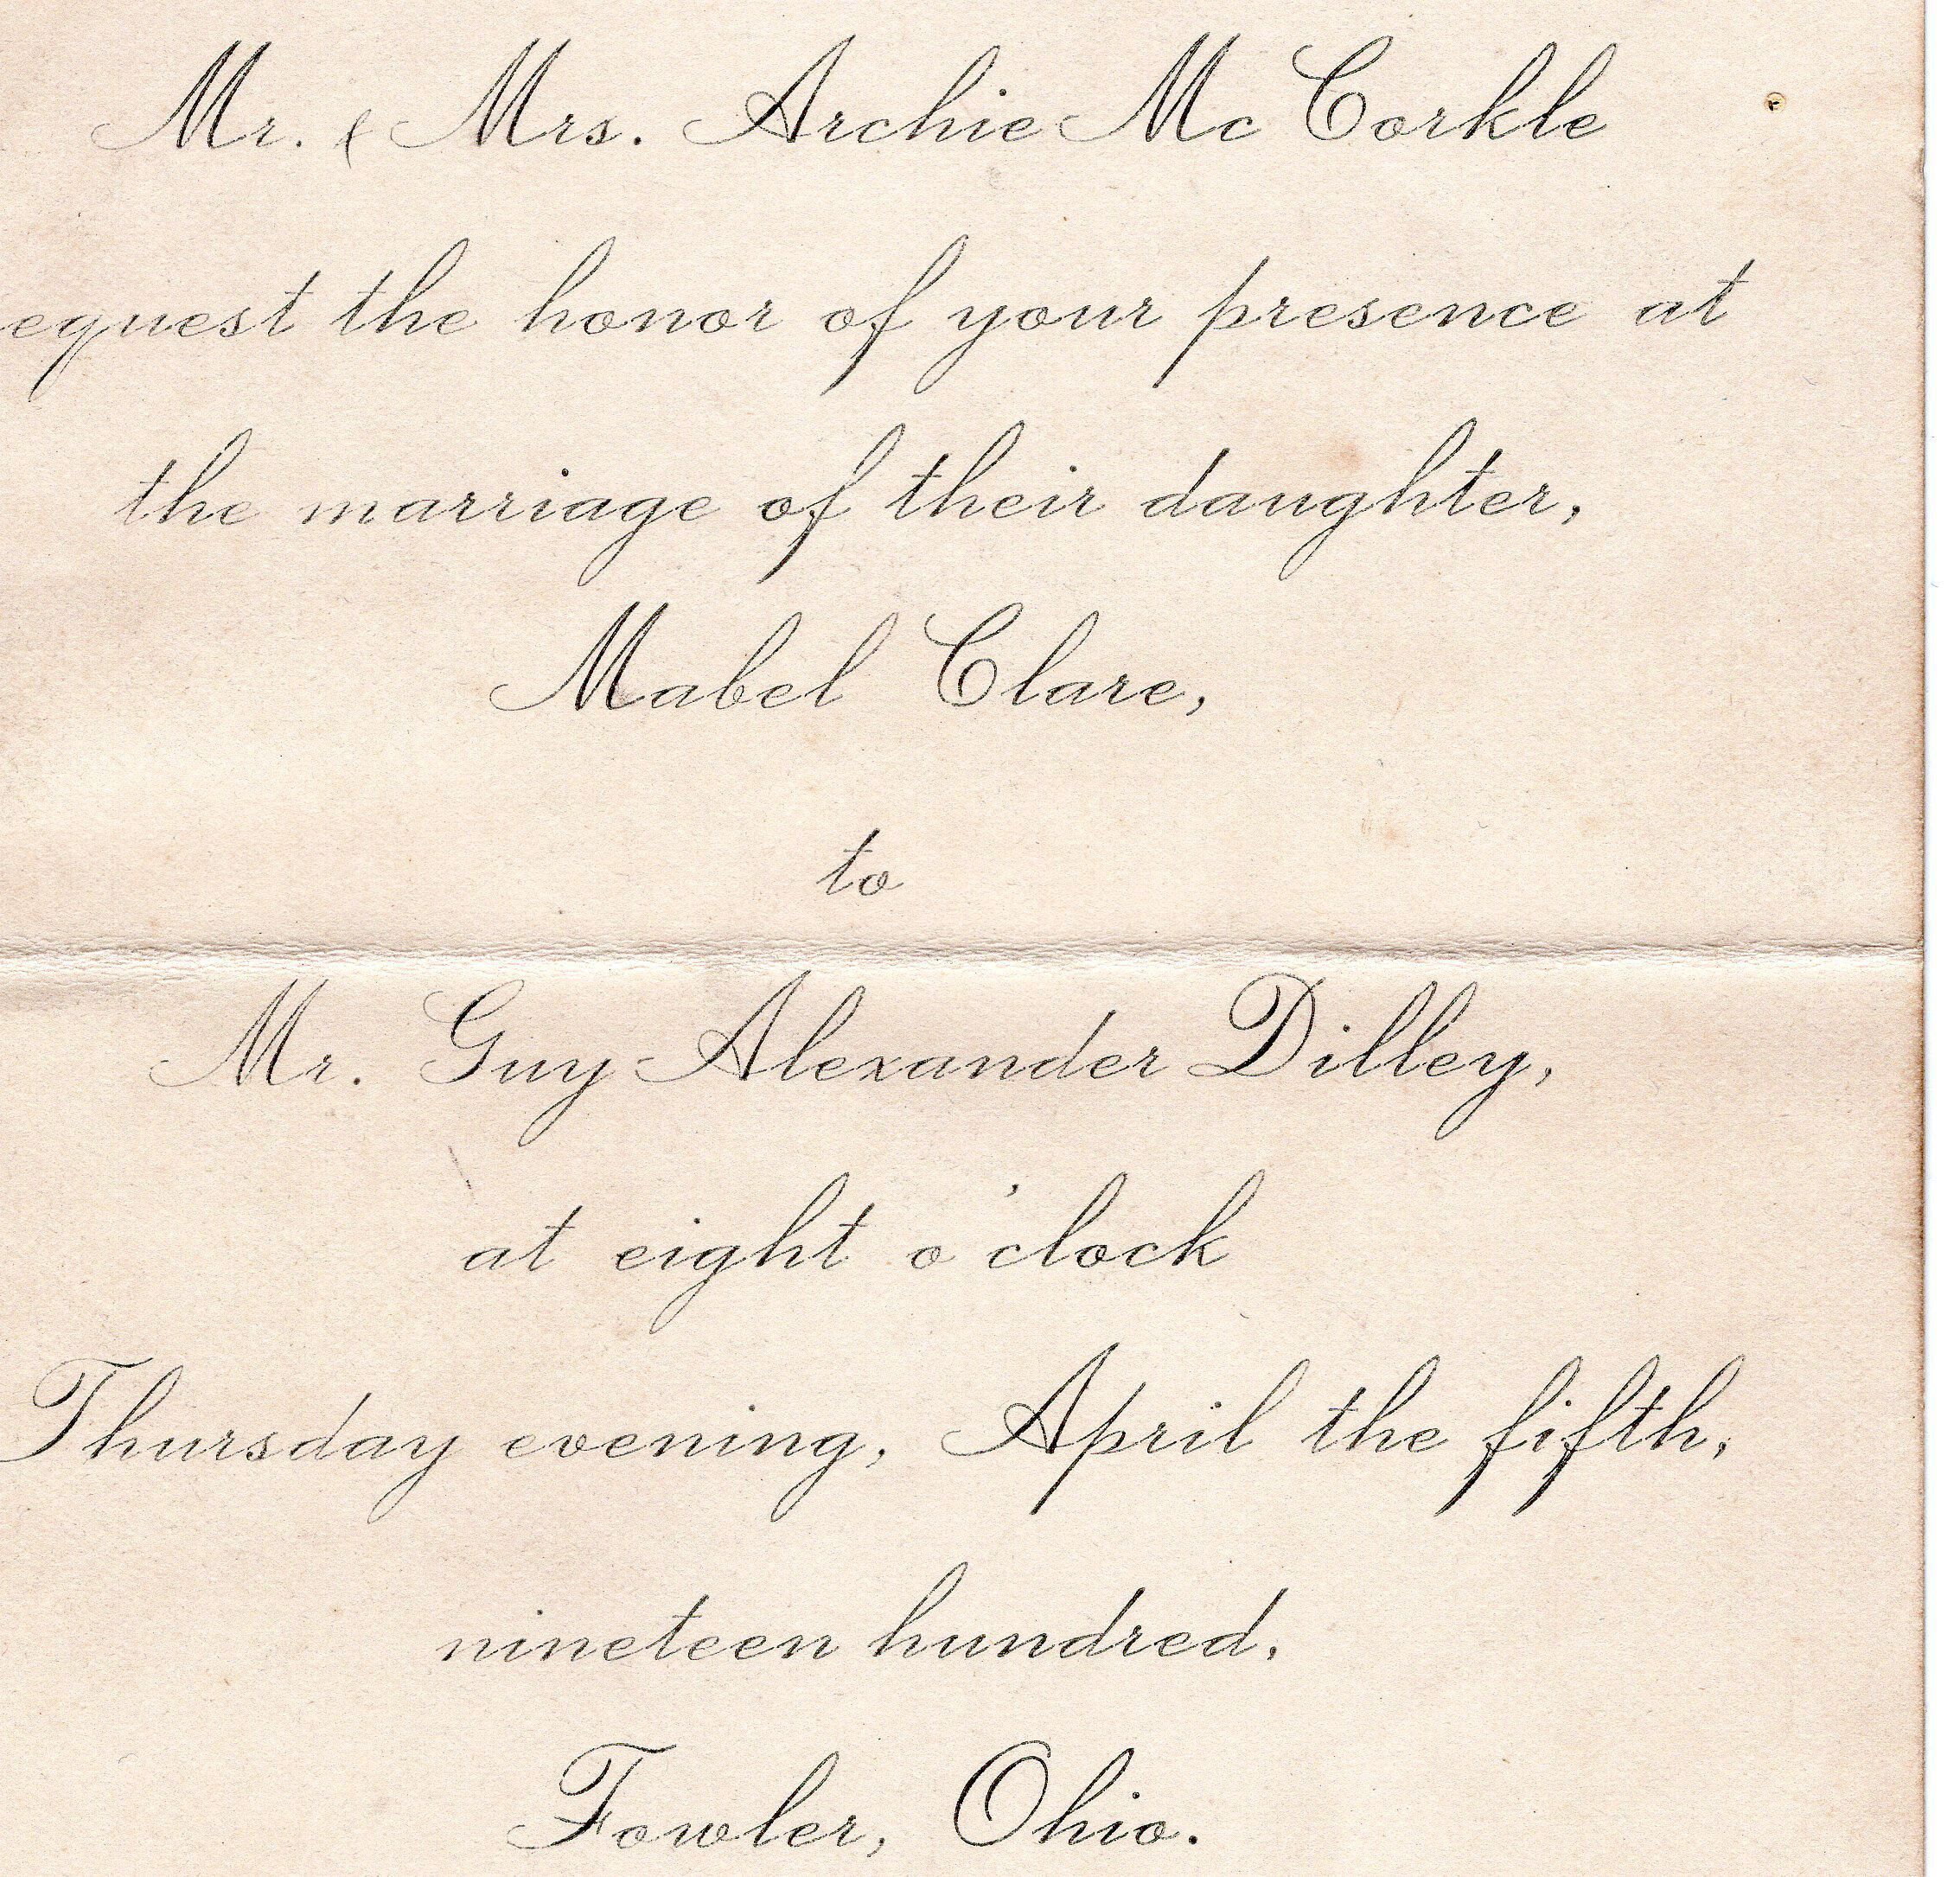 Mr. & Mrs. Archie Mc Corkle
equest the honor of your presence at
the marriage of their daughter,
Mabel Clare,
to
Mr. Guy Alexander Dilley,
at eight o'clock
Thursday evening, April the fifth,
nineteen hundred.
Fowler, Ohio.